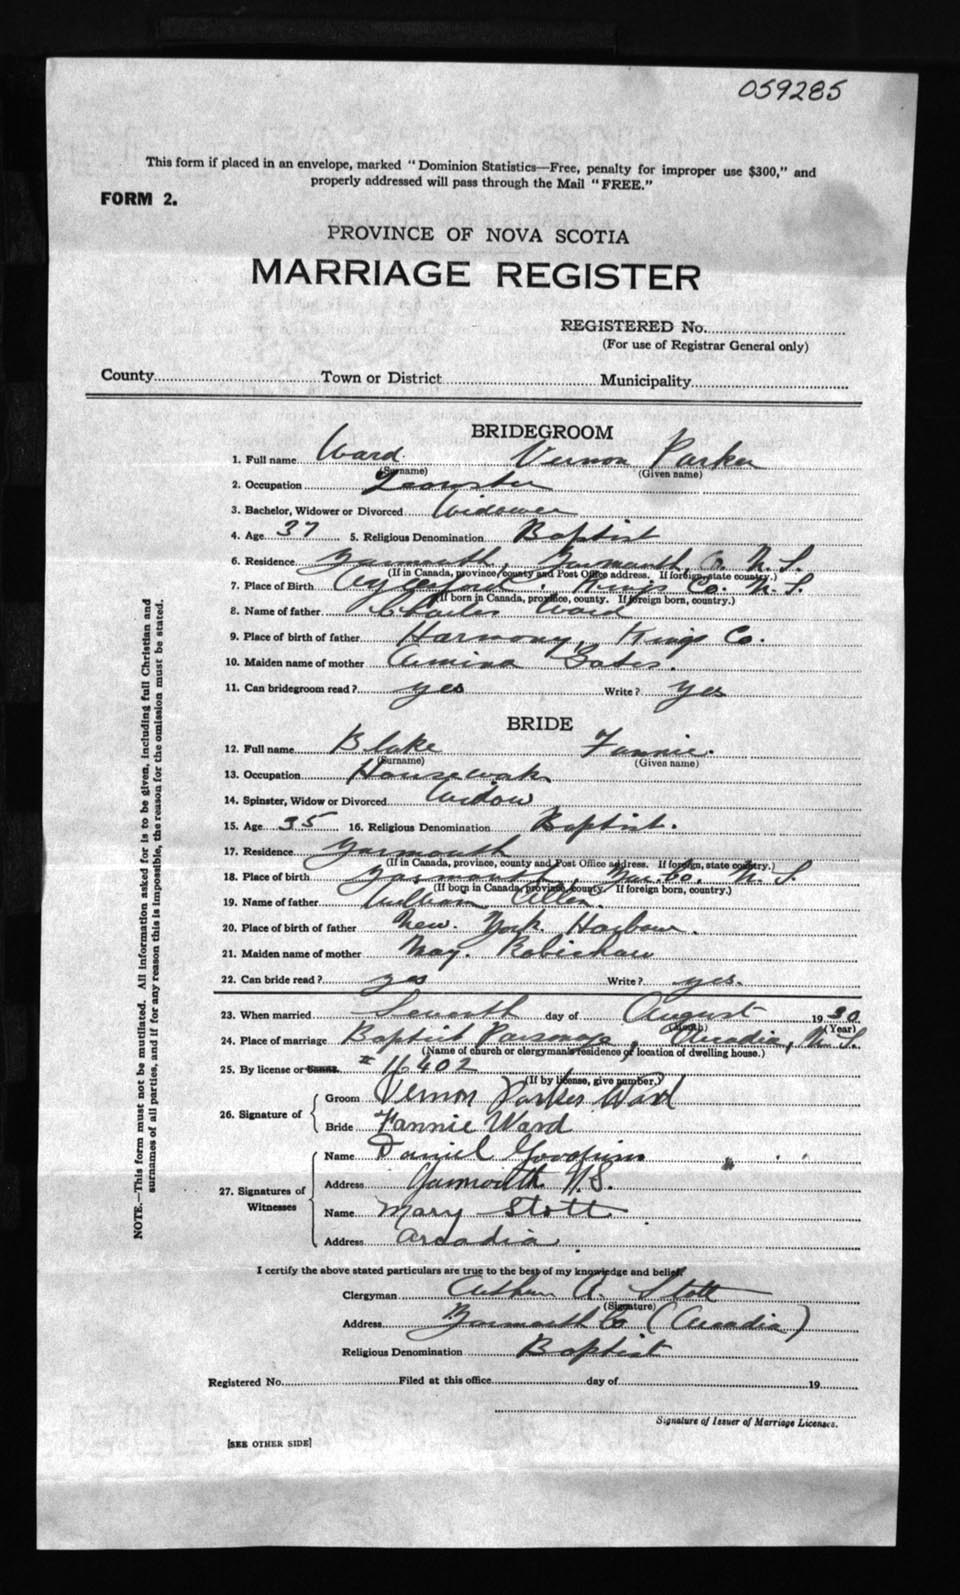 059285
This form if placed in an envelope, marked "Dominion Statistics—Free, penalty for improper use $300," and
properly addressed will pass through the Mail "FREE."
FORM 2.
PROVINCE OF NOVA SCOTIA
MARRIAGE REGISTER
REGISTERED No.
(For use of Registrar General only)
County Town or District Municipality
BRIDEGROOM
1. Full name Ward Vernon Parker
(Surname) (Given name)
2. Occupation Teamster
3. Bachelor, Widower or Divorced Widower
4. Age 37 5. Religious Denomination Baptist
6. Residence Yarmouth, Yarmouth Co. N. S.
(If in Canada, province, county and Post Office address. If foreign, state country.)
7. Place of Birth Aylesford, Kings Co. N. S.
(If born in Canada, province, county. If foreign born, country.)
8. Name of father Charles Ward
9. Place of birth of father Harmony, Kings Co.
10. Maiden name of mother Bates.
11. Can bridegroom read? yes Write? yes
BRIDE
12. Full name Blake Fannie.
(Surname) (Given name)
13. Occupation Housework
14. Spinster, Widow or Divorced Widow
15. Age 35 16. Religious Denomination Baptist.
17. Residence Yarmouth
(If in Canada, province, county and Post Office address. If foreign, state country.)
18. Place of birth Yarmouth, Yar. Co. N. S.
(If born in Canada, province, county. If foreign born, country.)
19. Name of father William Allen.
20. Place of birth of father New. York. Harbour.
21. Maiden name of mother May. Robichaw
22. Can bride read? yes Write? yes.
23. When married Seventh day of August 1930
(Month) (Year)
24. Place of marriage Baptist Parsonage, Arcadia, N. S.
(Name of church or clergyman's residence or location of dwelling house.)
25. By license or Banns. # 16402
(If by license, give number.)
26. Signature of
Groom Vernon Parker Ward
Bride Fannie Ward
27. Signatures of Witnesses
Name Daniel
Address Yarmouth N.S.
Name Mary Stott
Address Arcadia.
I certify the above stated particulars are true to the best of my knowledge and belief.
Clergyman Arthur A. Stott
(Signature)
Address Yarmouth Co (Arcadia)
Religious Denomination Baptist
Registered No. Filed at this office day of 19
Signature of Issuer of Marriage Licenses.
[SEE OTHER SIDE]
NOTE.—This form must not be mutilated. All information asked for is to be given, including full Christian and
surnames of all parties, and if for any reason this is impossible, the reason for the omission must be stated.